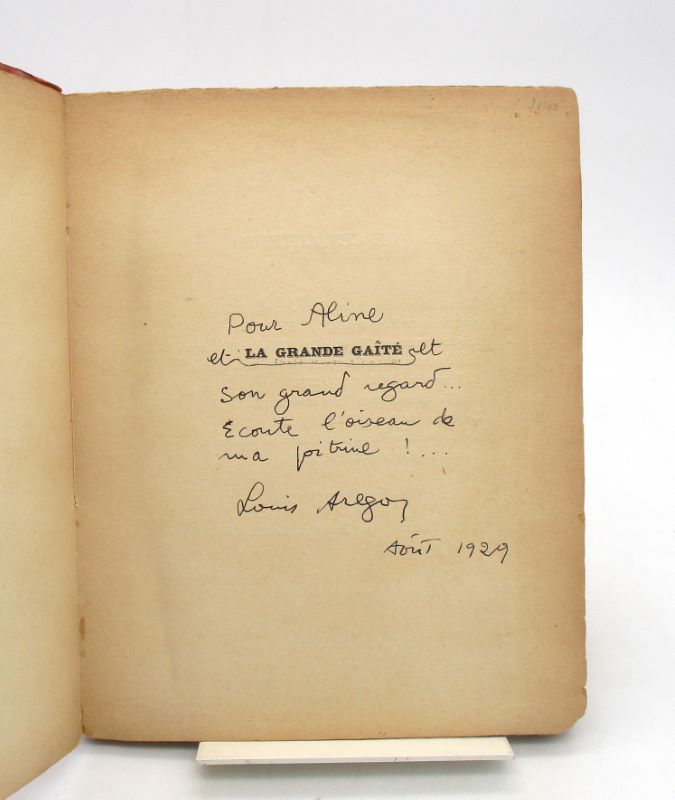 Pour Aline
et LA GRANDE GAÎTÉ et
son grand regard...
Ecoute l'oiseau de
ma poitrine !...
Louis Aragon
Août 1929